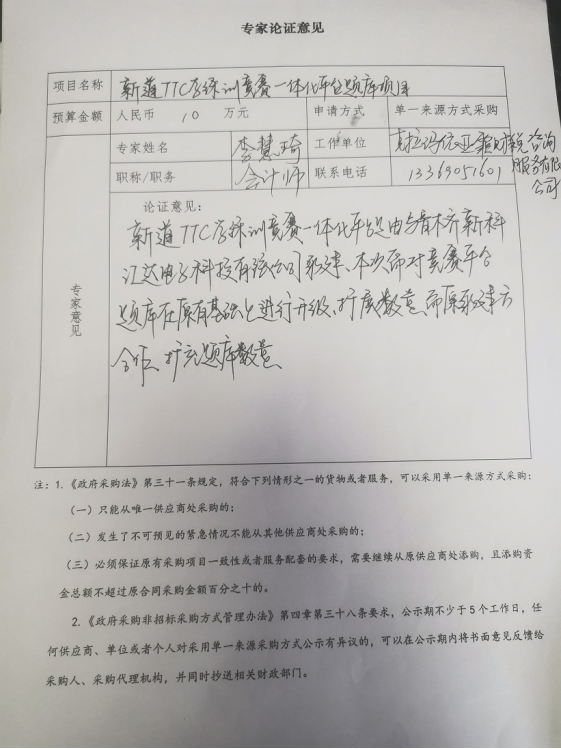 专家论证意见
项目名称 新道TTC学练训竞赛一体化平台题库项目
预算金额 人民币 10 万元 申请方式 单一来源方式采购
专家姓名 李慧琦 工作单位 克拉玛依亚 财税咨询
服务有限
公司
职称/职务 会计师 联系电话 13369051601
专家意见
论证意见:
新道TTC学练训竞赛一体化平台是由乌鲁木齐新科
汇达电子科技有限公司承建、本次需对竞赛平台
题库在原有基础上进行升级、扩展数量、需原承建方
合作、扩充题库数量
注:1.《政府采购法》第三十一条规定,符合下列情形之一的货物或者服务,可以采用单一来源方式采购:
(一)只能从唯一供应商处采购的;
(二)发生了不可预见的紧急情况不能从其他供应商处采购的;
(三)必须保证原有采购项目一致性或者服务配套的要求,需要继续从原供应商处添购,且添购资
金总额不超过原合同采购金额百分之十的。
2.《政府采购非招标采购方式管理办法》第四章第三十八条要求,公示期不少于5个工作日,任
何供应商、单位或者个人对采用单一来源采购方式公示有异议的,可以在公示期内将书面意见反馈给
采购人、采购代理机构,并同时抄送相关财政部门。